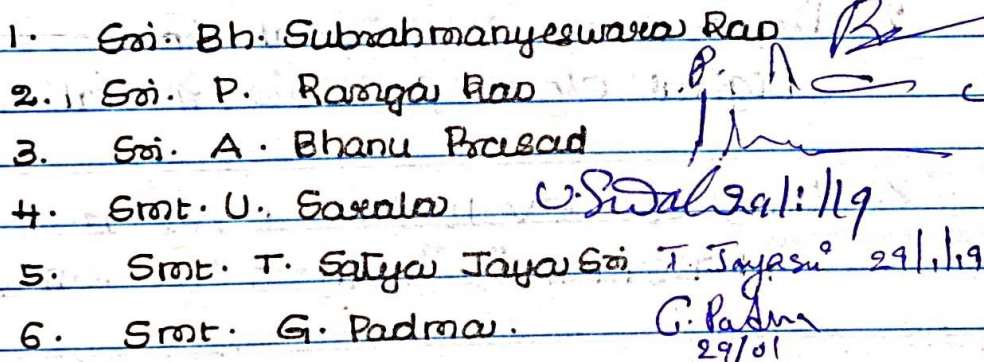 1. Sri. Bh. Subrahmanyeswara Rao
2. Sri. P. Ranga Rao P.
3. Sri. A. Bhanu Prasad
4. Smt. U. Sarala U. 29/1/19
5. Smt. T. Satya Jaya Sri T. Jayasri 29/1/19
6. Smt. G. Padma. G. Padma
29/01